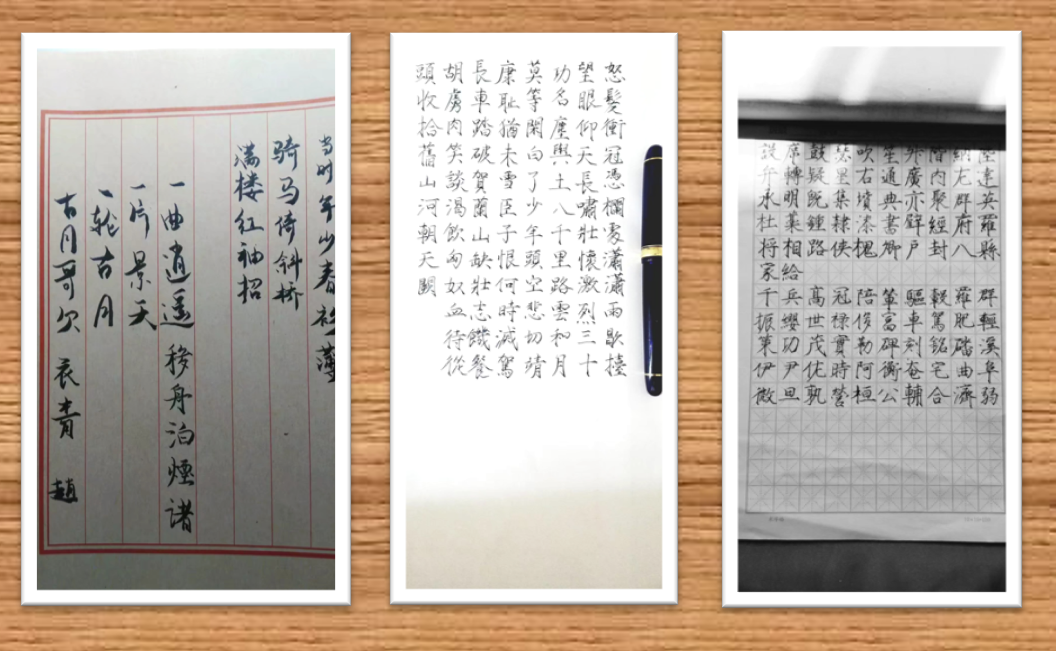 当时年少春衫薄
骑马倚斜桥
满楼红袖招
一曲逍遥 移舟泊煙诸
一片景天
一轮古月
古月哥欠 衣青 趙
怒髮衝冠憑欄處瀟瀟雨歇擡
望眼仰天長嘯壯懷激烈三十
功名塵與土八千里路雲和月
莫等閑白了少年頭空悲切靖
康耻猶未雪臣子恨何時滅駕
長車踏破賀蘭山缺壯志饑餐
胡虜肉笑談渴飲匈奴血待從
頭收拾舊山河朝天闕
設席鼓瑟吹笙升階納陛
弁轉疑星右通廣内左達
承明既集墳典亦聚群英
杜藁鍾隸漆書壁經府羅
將相路俠槐卿户封八縣
家給
千兵高冠陪輦驅轂羅群
振纓世禄侈富車篤肥輕
策功茂實勒碑刻銘磻溪
伊尹佐時阿衡奄宅曲阜
微旦孰營桓公輔合濟弱